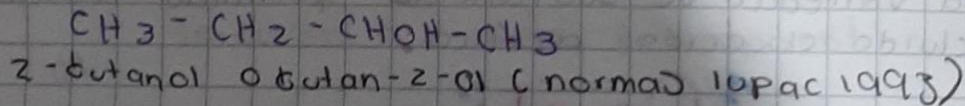 CH3 - CH2 - CHOH - CH3
2-butanol o butan-2-ol (norma) iupac 1993)